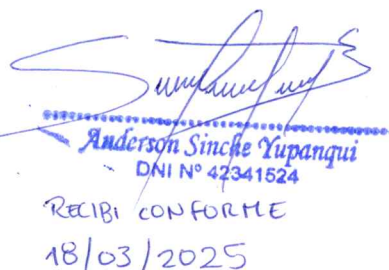 Anderson Sinche Yupanqui
DNI Nº 42341524
RECIBI CONFORME
18/03/2025